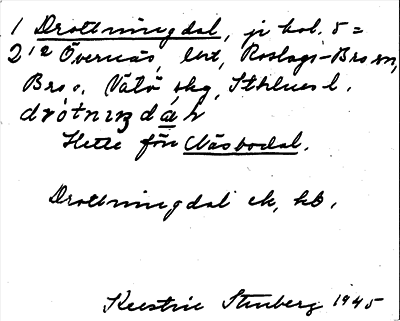 1 Drottningdal, jr kol. 5 =
2¹² Övernäs, lht, Roslags-Bro sn,
Bro o. Vätö skg, Sthlms l.
drótniŋdȧ̱l
Hette förr Näsbodal.
Drottningdal ek, kb.
Kerstin Stenberg 1945